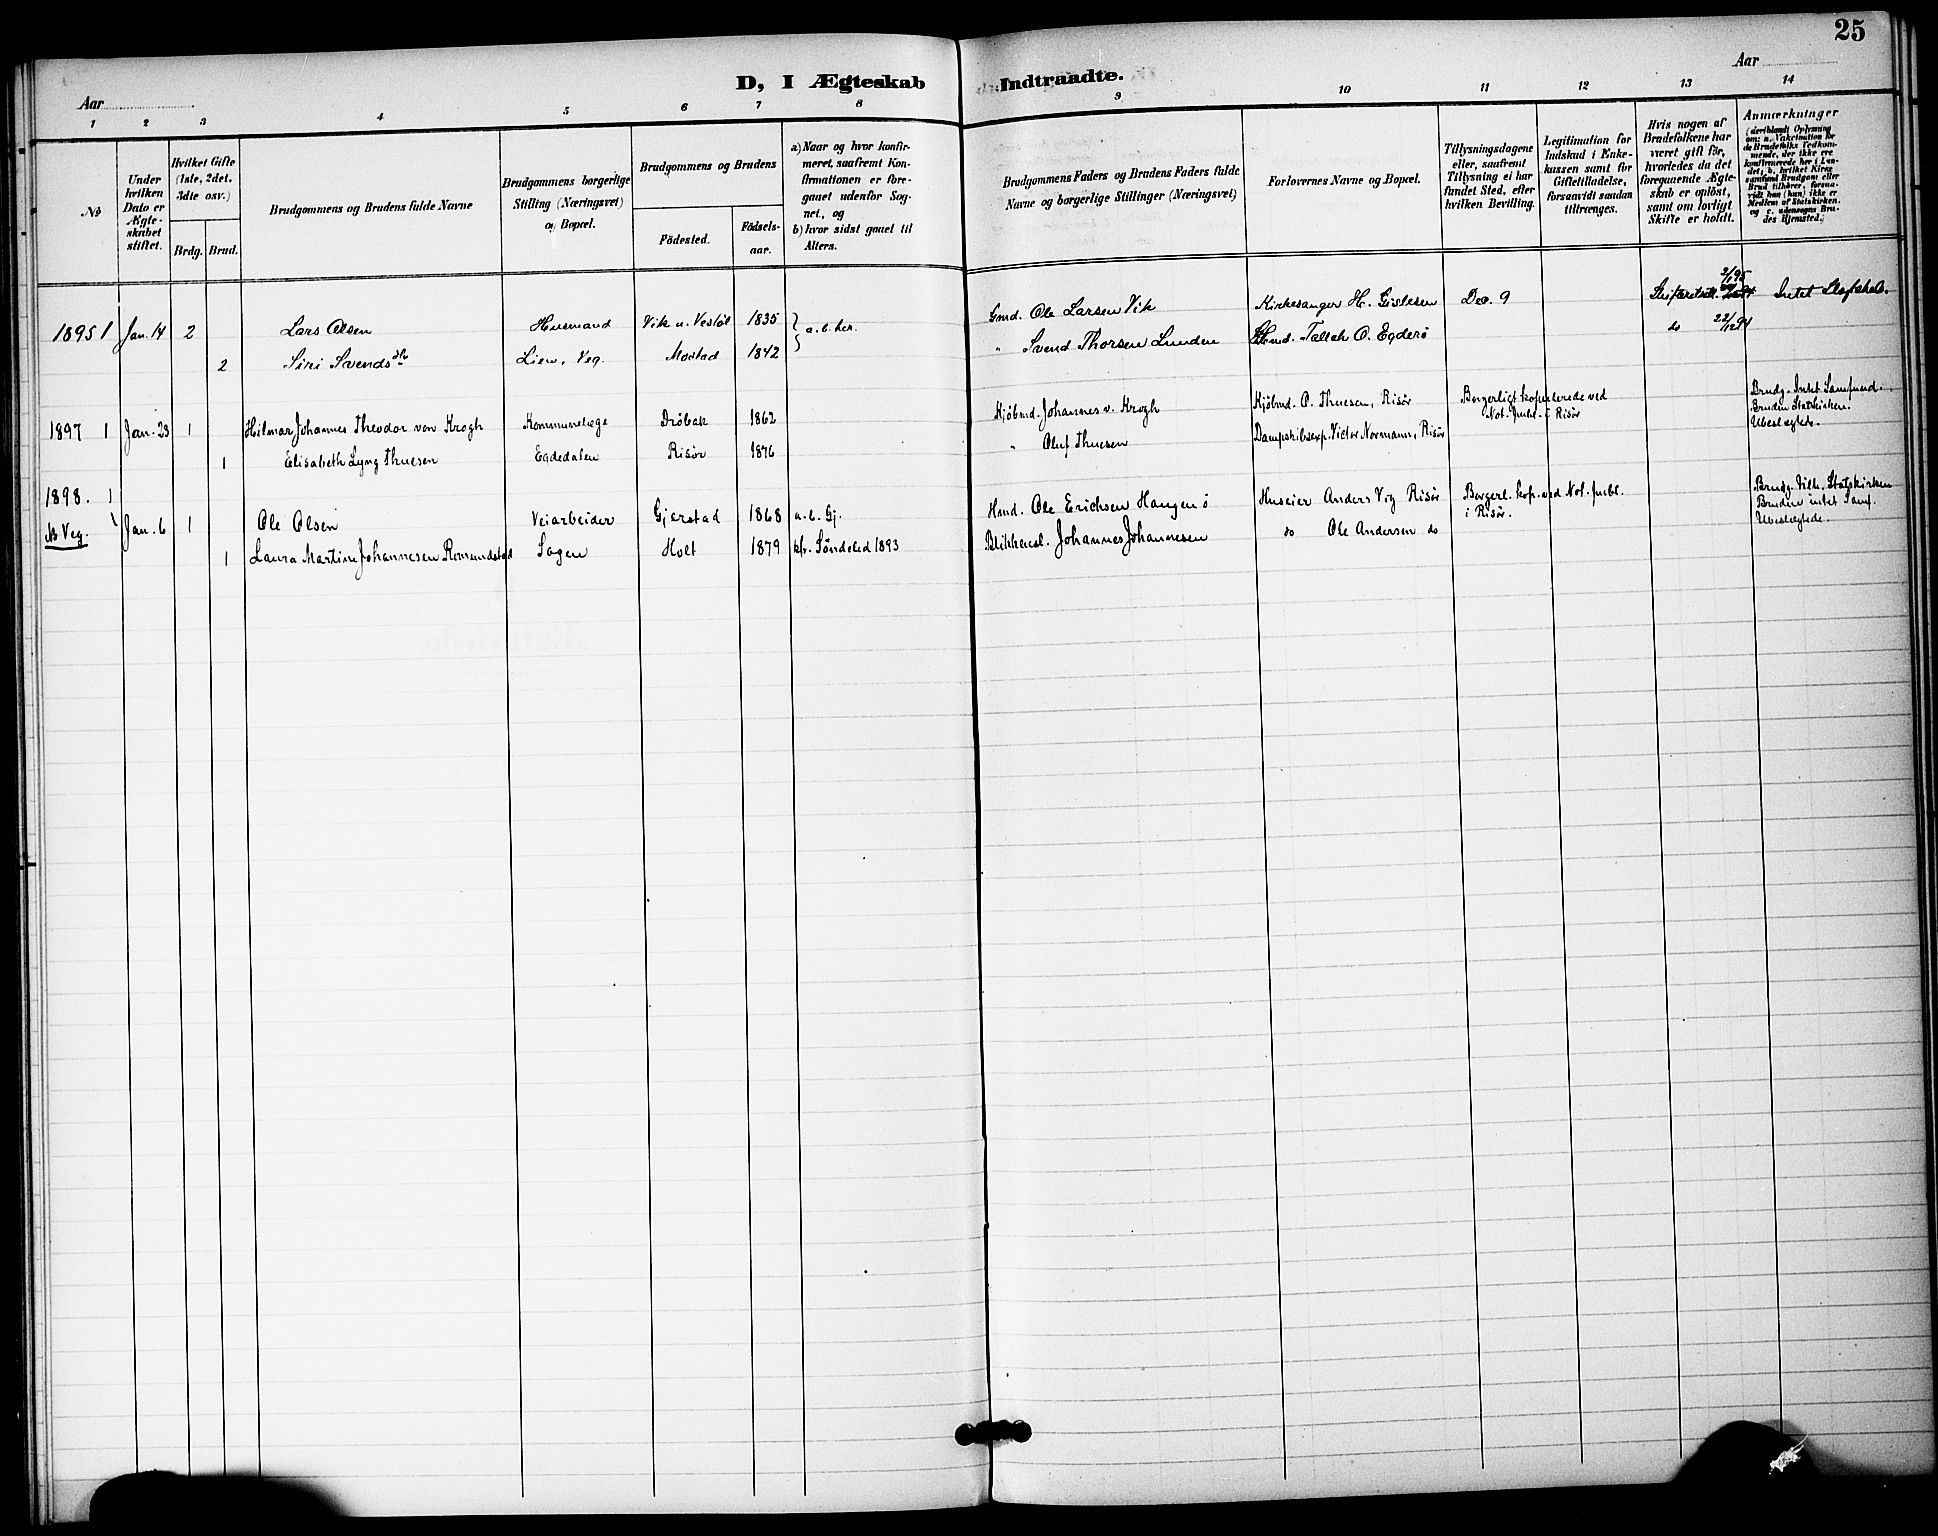 25
D, I Ægteskab Indtraadte.
Aar
Aar
1 2 3 4 5 6 7 8 9 10 11 12 13 14
№
Under hvilken Dato er Ægteskabet stiftet.
Hvilket Gifte (1ste, 2det, 3dte osv.)
Brdg. Brud.
Brudgommens og Brudens fulde Navne
Brudgommens borgerlige Stilling (Næringsvei) og Bopæl.
Brudgommens og Brudens
Födested. Födselsaar.
a) Naar og hvor konfirmeret, saafremt Konfirmationen er foregaaet udenfor Sognet, og
b) hvor sidst gaaet til Alters.
Brudgommens Faders og Brudens Faders fulde Navne og borgerlige Stillinger (Næringsvei)
Forlovernes Navne og Bopæl.
Tillysningsdagene eller, saafremt Tillysning ei har fundet Sted, efter hvilken Bevilling.
Legitimation for Indskud i Enkekassen samt for Giftetilladelse, forsaavidt saadan tiltrænges.
Hvis nogen af Brudefolkene har været gift för, hvorledes da det foregaaende Ægteskab er oplöst, samt om lovligt Skifte er holdt.
Anmærkninger
(deriblandt Oplysning om: a. Vakcination for de Brudefolks Vedkommende, der ikke ere konfirmerede her i Landet; b. hvilket Kirkesamfund Brudgom eller Brud tilhörer, forsaavidt han (hun) ikke er Medlem af Statskirken, og c. udensogns Brudes Hjemsted.)
1895 1 Jan. 14 2 Lars Olsen Husmand Vik u. Vestøl 1835 a.b. her. Gmd. Ole Larsen Vik Kirkesanger H. Gislesen Dec. 9 2/1 95 Intet Slægtskab.
2 Siri Svendsdtr Lien, Veg. Mostad 1842 " Svend Thorsen Lunden Gmd. Tallak O. Egderö do 22/12 94
1897 1 Jan. 23 1 Hilmar Johannes Theodor von Krogh Kommunelæge Dröbak 1862 Kjöbmd. Johannes v. Krogh Kjöbmd. P. Thuesen, Risör Borgerligt kopulerede ved Not. publ. i Risör Brudg. Intet Samfund. Bruden Statskirken. Ubeslægtede.
1 Elisabeth Lyng Thuesen Egdedalen Risör 1876 " Oluf Thuesen Dampskibsexp. Victor Normann, Risör
1898. 1
B Veg. Jan. 6 1 Ole Olsen Veiarbeider Gjerstad 1868 a.b. Gj. Hmd. Ole Erichsen Haugen ö Huseier Anders Vig Risör Borgerl. kop. ved Not. publ. i Risör. Brudg. tilh. Statskirken Bruden intet Samf. Ubeslægtede.
1 Laura Martine Johannesen Romundstad Sagen Holt 1879 kfr. Söndeled 1893 Blikkensl. Johannes Johannesen do Ole Andersen do